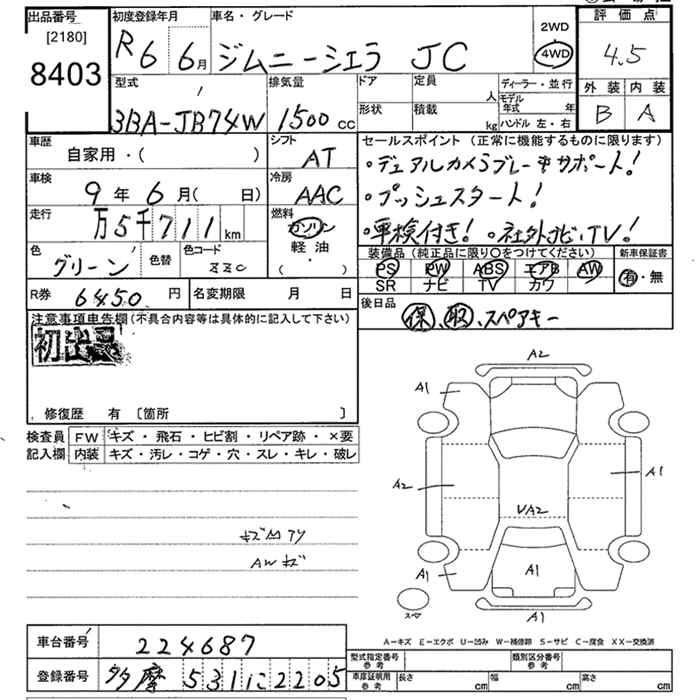 出品番号
[2180]
8403
初度登録年月
R6 6月
車名・グレード
ジムニーシエラ JC
2WD
4WD
評価点
4.5
外装 内装
B A
型式
3BA-JB74W
排気量
1500 cc
ドア
形状
定員 人
積載 kg
ディーラー・並行
モデル年式 年
ハンドル 左・右
車歴
自家用・( )
シフト
AT
車検
9年 6月( 日)
冷房
AAC
走行
万5千711 km
燃料
ガソリン
軽油
( )
色
グリーン
色替
色コード
ZZC
R券 6450 円
名変期限 月 日
セールスポイント (正常に機能するものに限ります)
・デュアルカメラブレーキサポート!
・プッシュスタート!
・車検付き! ・社外ナビ、TV!
装備品 (純正品に限り○をつけてください)
PS PW ABS エアB AW
SR ナビ TV カワ
新車保証書
有・無
後日品
保、取、スペアキー
注意事項申告欄(不具合内容等は具体的に記入して下さい)
初出品
修復歴 有 〔箇所 〕
検査員記入欄
FW キズ・飛石・ヒビ割・リペア跡・×要
内装 キズ・汚レ・コゲ・穴・スレ・キレ・破レ
AWキズ
A2
A1
A2
A1
VA2
A1
A1
A1
スペア
A-キズ E-エクボ U-凹み W-補修跡 S-サビ C-腐食 XX-交換済
車台番号
224687
登録番号
多摩 531 に 2205
型式指定番号
参考
類別区分番号
参考
車庫証明用
参考
長さ cm
幅 cm
高さ cm